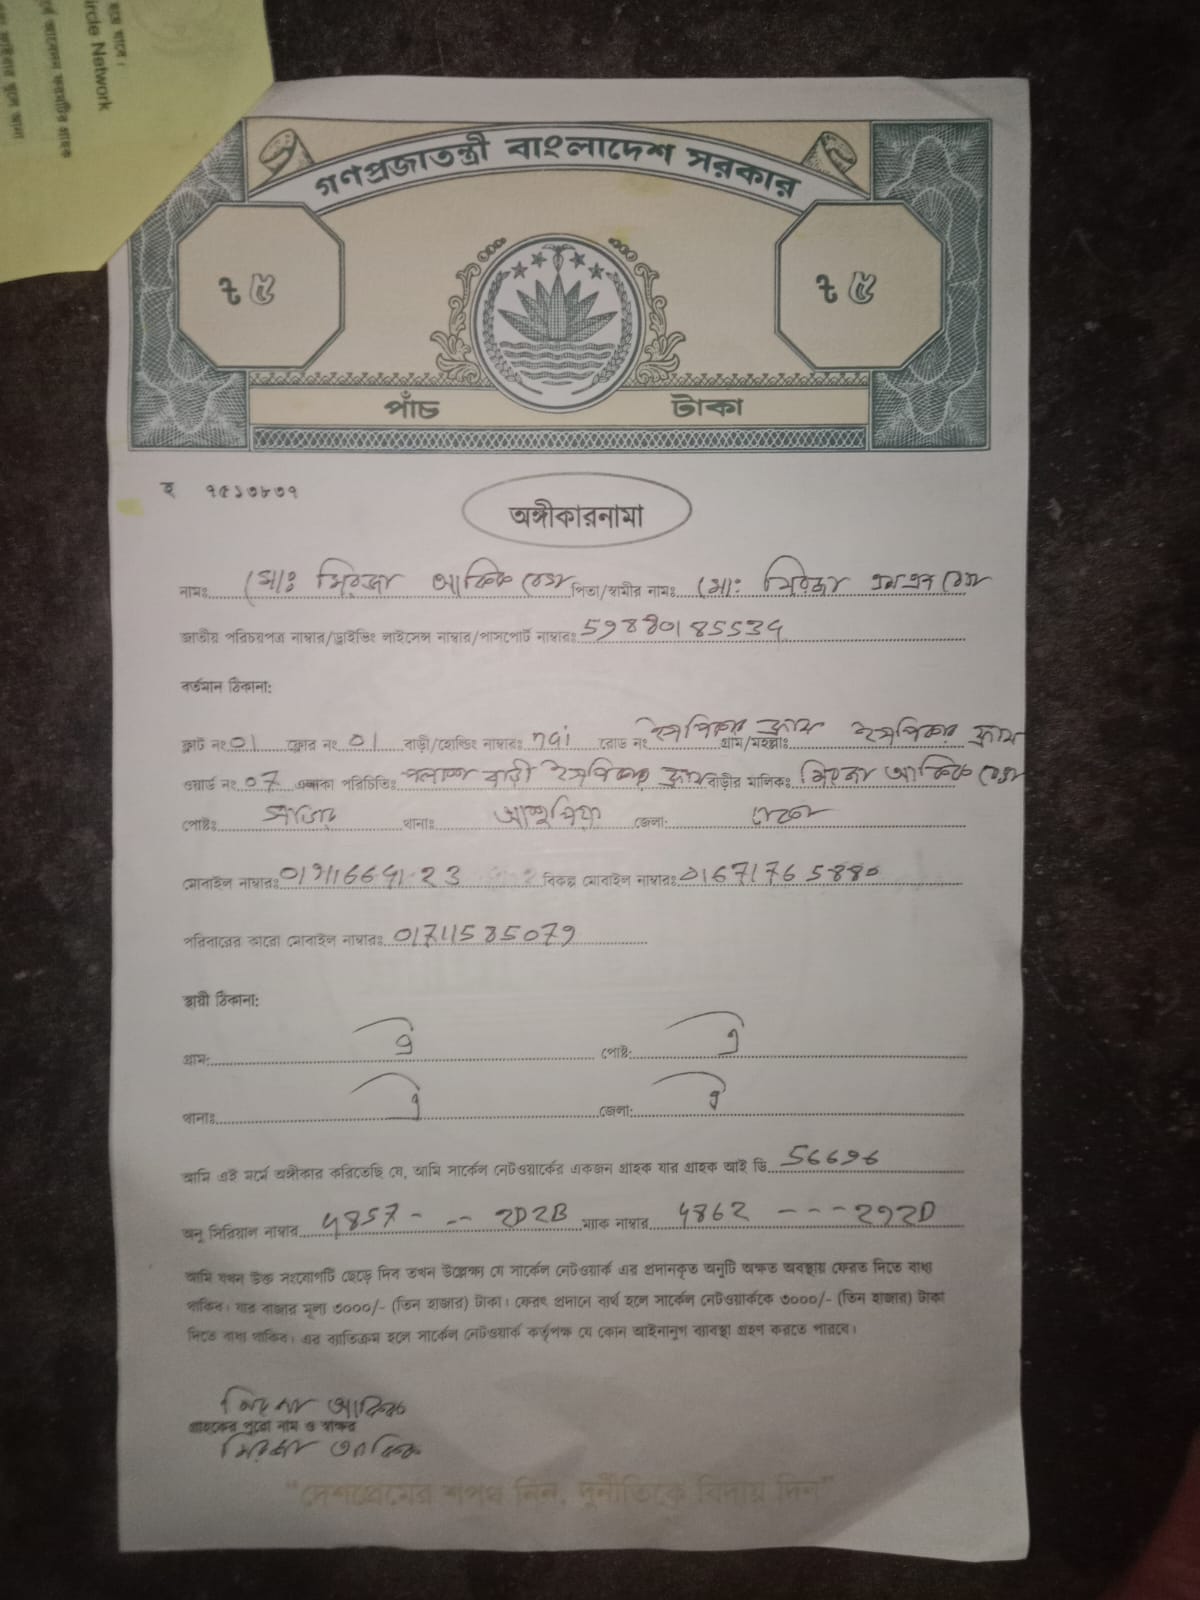 হয়ে যাবে।
ircle Network
গণপ্রজাতন্ত্রী বাংলাদেশ সরকার
৳ ৫ ৳ ৫
পাঁচ টাকা
হ ৭৫১৩৮৩৭
অঙ্গীকারনামা
নামঃ মোঃ মিরজা আকিক রেজা পিতা/স্বামীর নামঃ মোঃ মিরজা এম এন রেজা
জাতীয় পরিচয়পত্র নাম্বার/ড্রাইভিং লাইসেন্স নাম্বার/পাসপোর্ট নাম্বারঃ
বর্তমান ঠিকানা:
ফ্লাট নং 01 ফ্লোর নং 01 বাড়ী/হোল্ডিং নাম্বারঃ রোড নং গ্রাম/মহল্লাঃ
ওয়ার্ড নং 07 এলাকা পরিচিতিঃ বাড়ীর মালিকঃ মিরজা আকিক রেজা
পোষ্টঃ থানাঃ আশুলিয়া জেলা: ঢাকা
মোবাইল নাম্বারঃ বিকল্প মোবাইল নাম্বারঃ
পরিবারের কারো মোবাইল নাম্বারঃ 01711585079
স্থায়ী ঠিকানা:
গ্রাম: ঐ পোষ্ট: ঐ
থানাঃ ঐ জেলা: ঐ
আমি এই মর্মে অঙ্গীকার করিতেছি যে, আমি সার্কেল নেটওয়ার্কের একজন গ্রাহক যার গ্রাহক আই ডি 56696
অনু সিরিয়াল নাম্বার 4857- -- 2D2B ম্যাক নাম্বার 4862 ---292D
আমি যখন উক্ত সংযোগটি ছেড়ে দিব তখন উল্লেক্ষ্য যে সার্কেল নেটওয়ার্ক এর প্রদানকৃত অনুটি অক্ষত অবস্থায় ফেরত দিতে বাধ্য
থাকিব। যার বাজার মূল্য ৩০০০/- (তিন হাজার) টাকা। ফেরৎ প্রদানে ব্যর্থ হলে সার্কেল নেটওয়ার্ককে ৩০০০/- (তিন হাজার) টাকা
দিতে বাধ্য থাকিব। এর ব্যতিক্রম হলে সার্কেল নেটওয়ার্ক কর্তৃপক্ষ যে কোন আইনানুগ ব্যবস্থা গ্রহণ করতে পারবে।
মিরজা আকিক
গ্রাহকের পুরো নাম ও স্বাক্ষর
মিরজা আকিক
"দেশপ্রেমের শপথ নিন, দুর্নীতিকে বিদায় দিন"